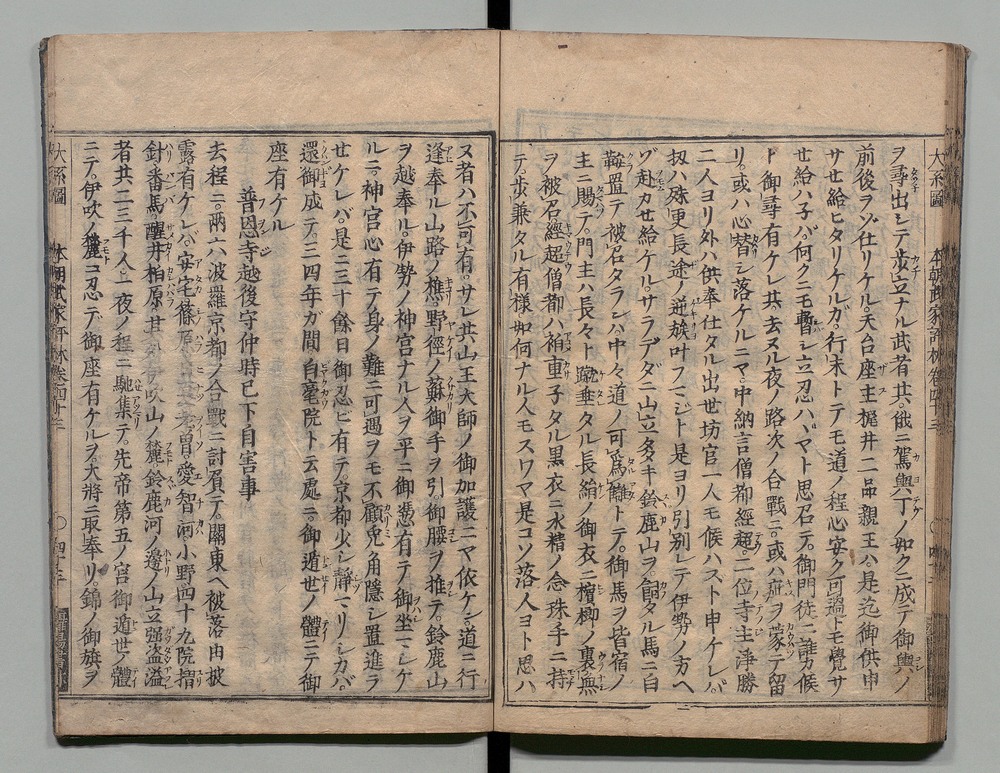 ヲ尋出シテ歩立ナル武者共。俄ニ駕輿丁ノ如クニ成テ御輿ノ
前後ヲゾ仕リケル。天台座主梶井二品親王ハ。是迄御供申
サセ給ヒタリケルガ。行末トテモ道ノ程心安ク可過トモ覺サ
セ給ハ子バ。何クニモ暫シ立忍ハバマト思召テ。御門徒ニ誰カ候
ト御尋有ケレ共。去ヌル夜ノ路次ノ合戰ニ。或ハ疵ヲ蒙テ留
リ。或ハ心替シ落ケルニマ。中納言僧都經超。二位寺主淨勝
二人ヨリ外ハ供奉仕タル出世坊官一人モ候ハスト申ケレバ。
扨ハ殊更長途ノ逆旅叶フマジト。是ヨリ引別レテ伊勢ノ方ヘ
ゾ赴カセ給ケル。サラデダニ山立多キ鈴鹿山ヲ。飼タル馬ニ白
鞍置テ被召タランハ。中々道ノ可爲難トテ。御馬ヲ皆宿ノ
主ニ賜テ。門主ハ長々ト蹴垂タル長絹ノ御衣ニ檳榔ノ裏無
ヲ被召。經超僧都ハ袙重子タル黒衣ニ水精ノ念珠手ニ持
テ。歩兼タル有樣。如何ナル人モスワマ是コソ落人ヨト思ハ
大系圖 本朝武家評林卷四十三
ヌ者ハ不可有。サレ共山王大師ノ御加護ニマ依ケン。道ニ行
逢奉ル山路ノ樵。野徑ノ蘇御手ヲ引。御腰ヲ推テ。鈴鹿山
ヲ越奉ル。伊勢ノ神宮ナル人ヲ平ニ御憑有テ御坐シケ
ルニ。神宮心有テ身ノ難ニ可遇ヲモ不顧。兎角隱シ置進ラ
セケレバ。是ニ三十餘日御忍ビ有テ。京都少シ靜マリシカバ。
還御成テ。三四年ガ間ハ白毫院ト云處ニ。御遁世ノ體ニテ御
座有ケル
普恩寺越後守仲時已下自害事
去程ニ。兩六波羅京都ノ合戰ニ討負テ。關東ヘ被落由披
露有ケレバ。安宅。篠原。日夏。老曾。愛智河。小野。四十九院。摺
針。番馬。醒井。柏原。其外伊吹山ノ麓。鈴鹿河ノ邊ノ山立強盜溢
者共二三千人一夜ノ程ニ馳集テ。先帝第五ノ宮御遁世ノ體
ニテ。伊吹ノ麓ニ忍テ御座有ケルヲ。大將ニ取奉リ。錦ノ御旗ヲ
大系圖 本朝武家評林卷四十三 四十三